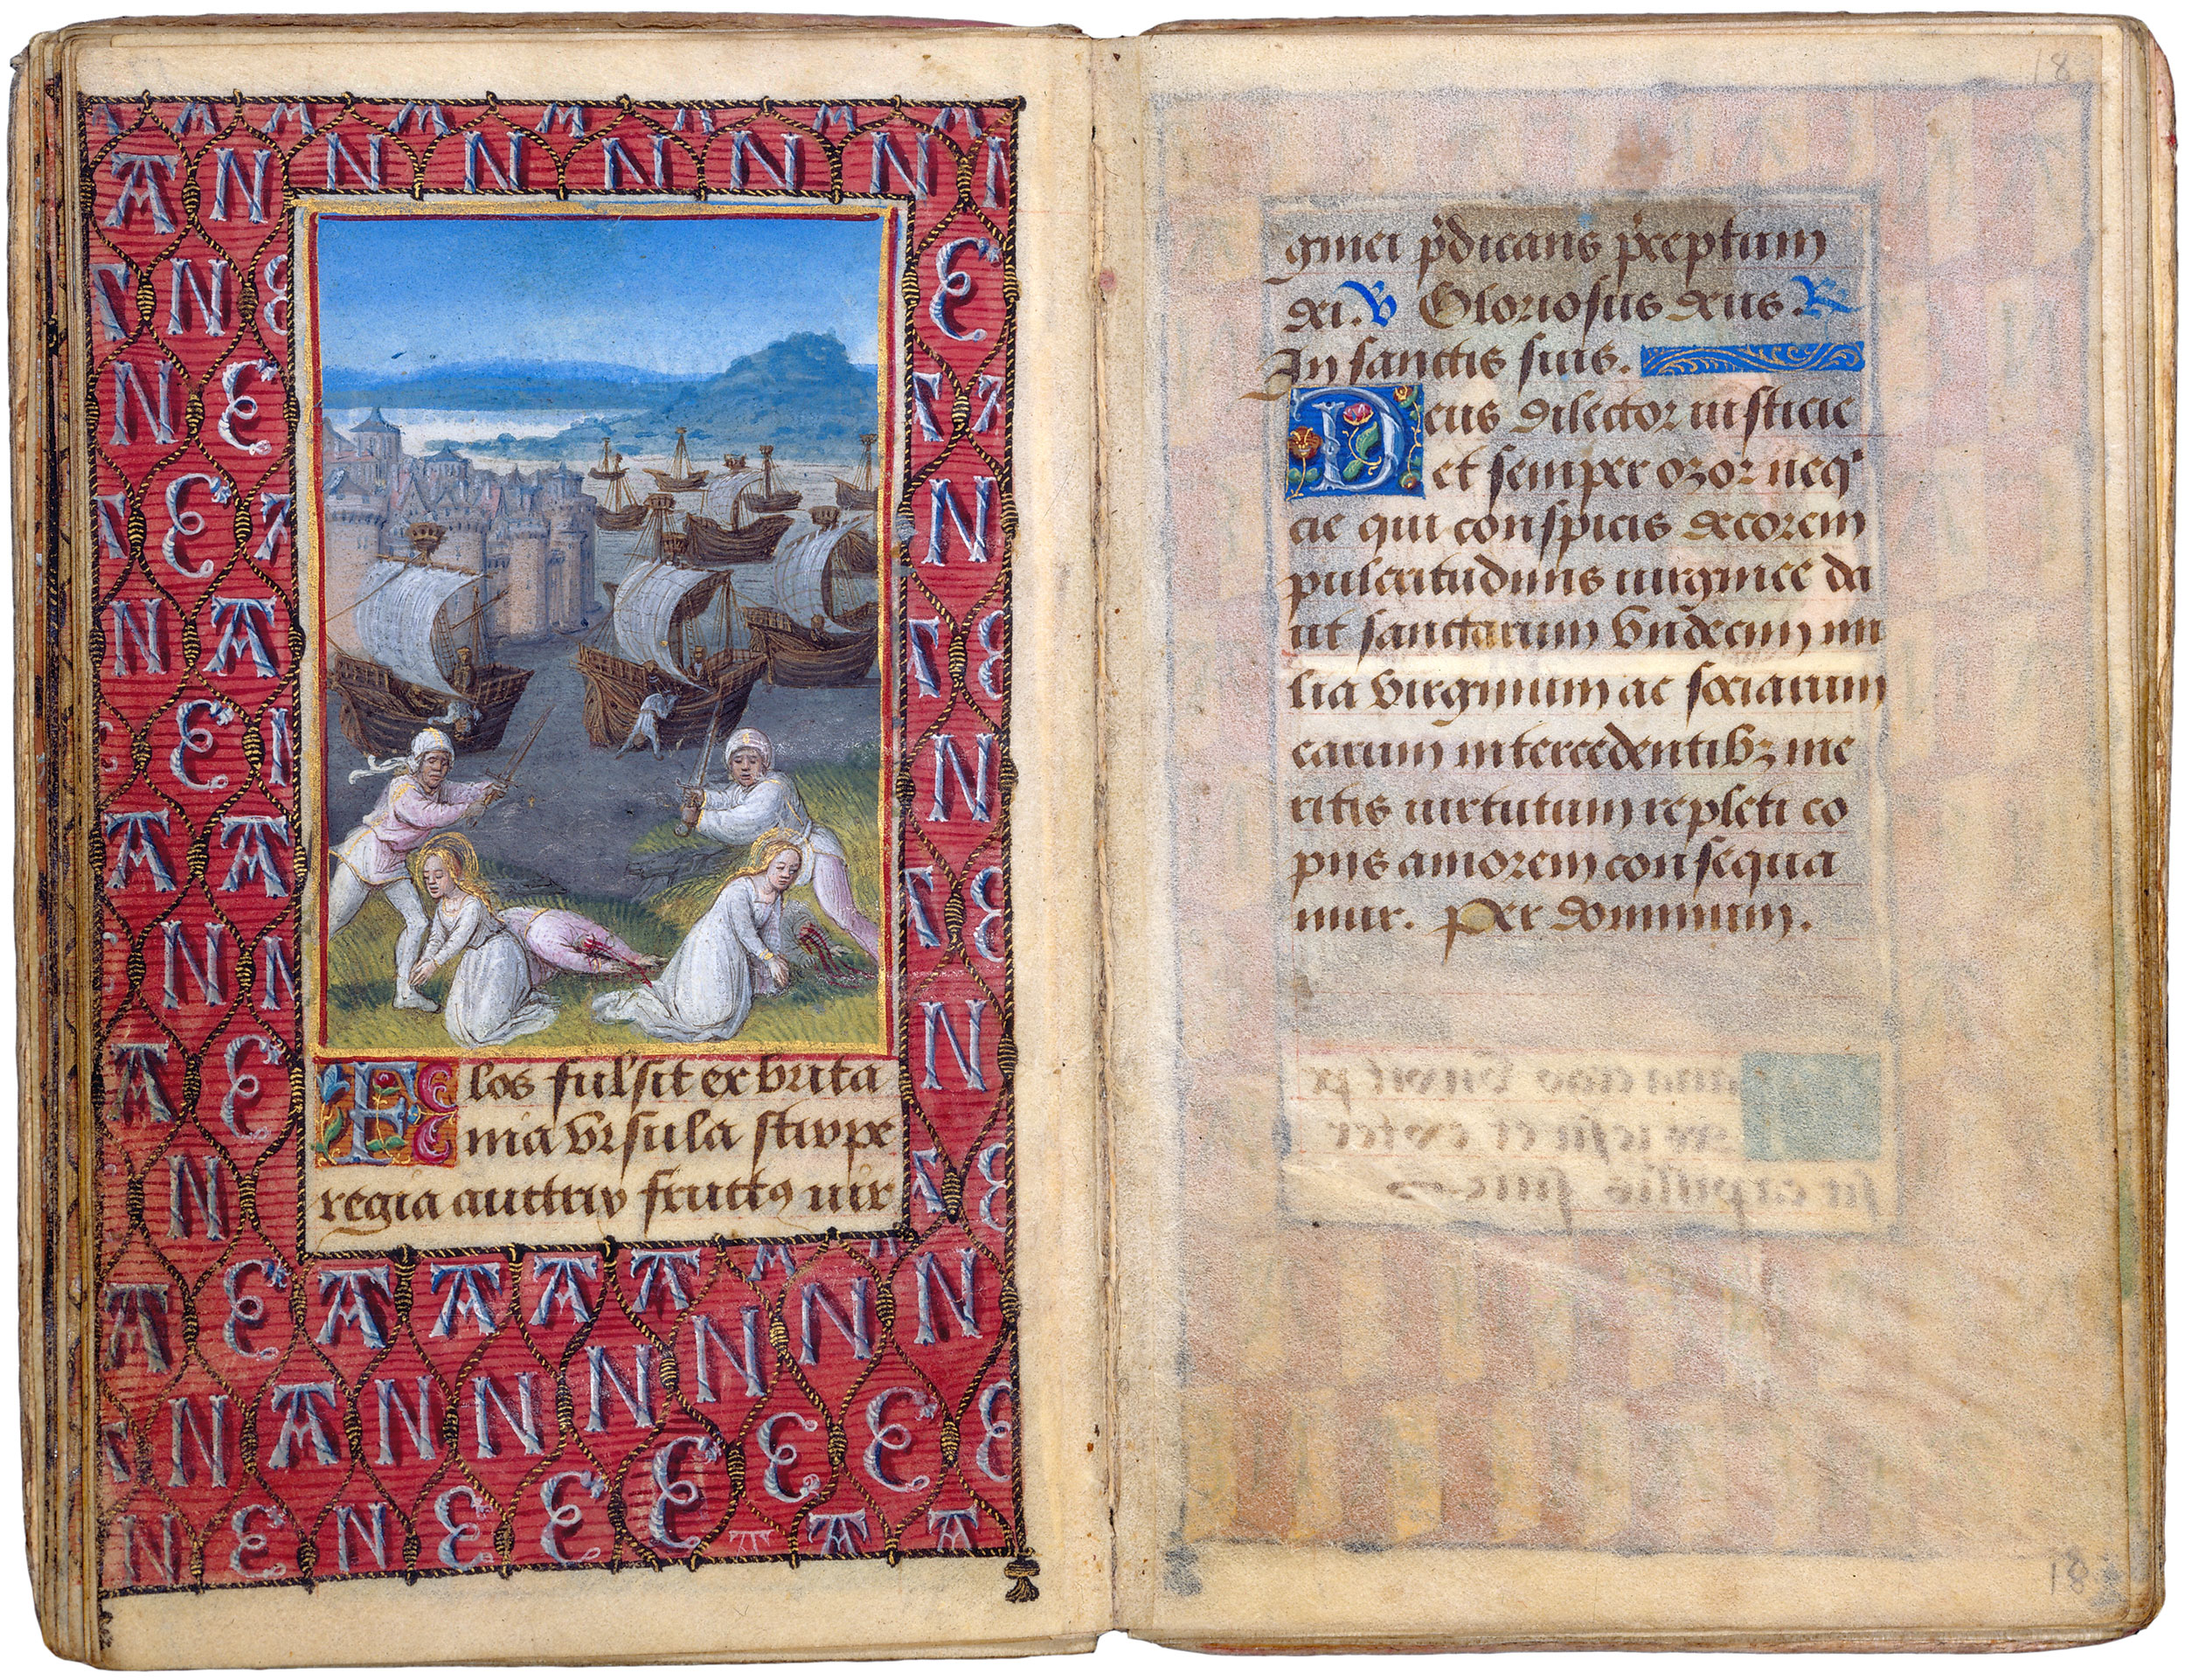 Flos fulsit ex brita
nia Vrsula stirpe
regia auctrix fructus uir
18
ginei p̄dicans p̄ceptum
dei. V Gloriosus deus R
In sanctis suis.
Deus dilector iusticie
et semper ozor neq
cie qui conspicis decorem
pulcritudinis uirginee da
ut sanctarum Vndecim mi
lia Virginum ac sociarum
earum intercedentibꝫ me
ritis uirtutum repleti co
pus amorem consequa
mur. Per dominum.
18